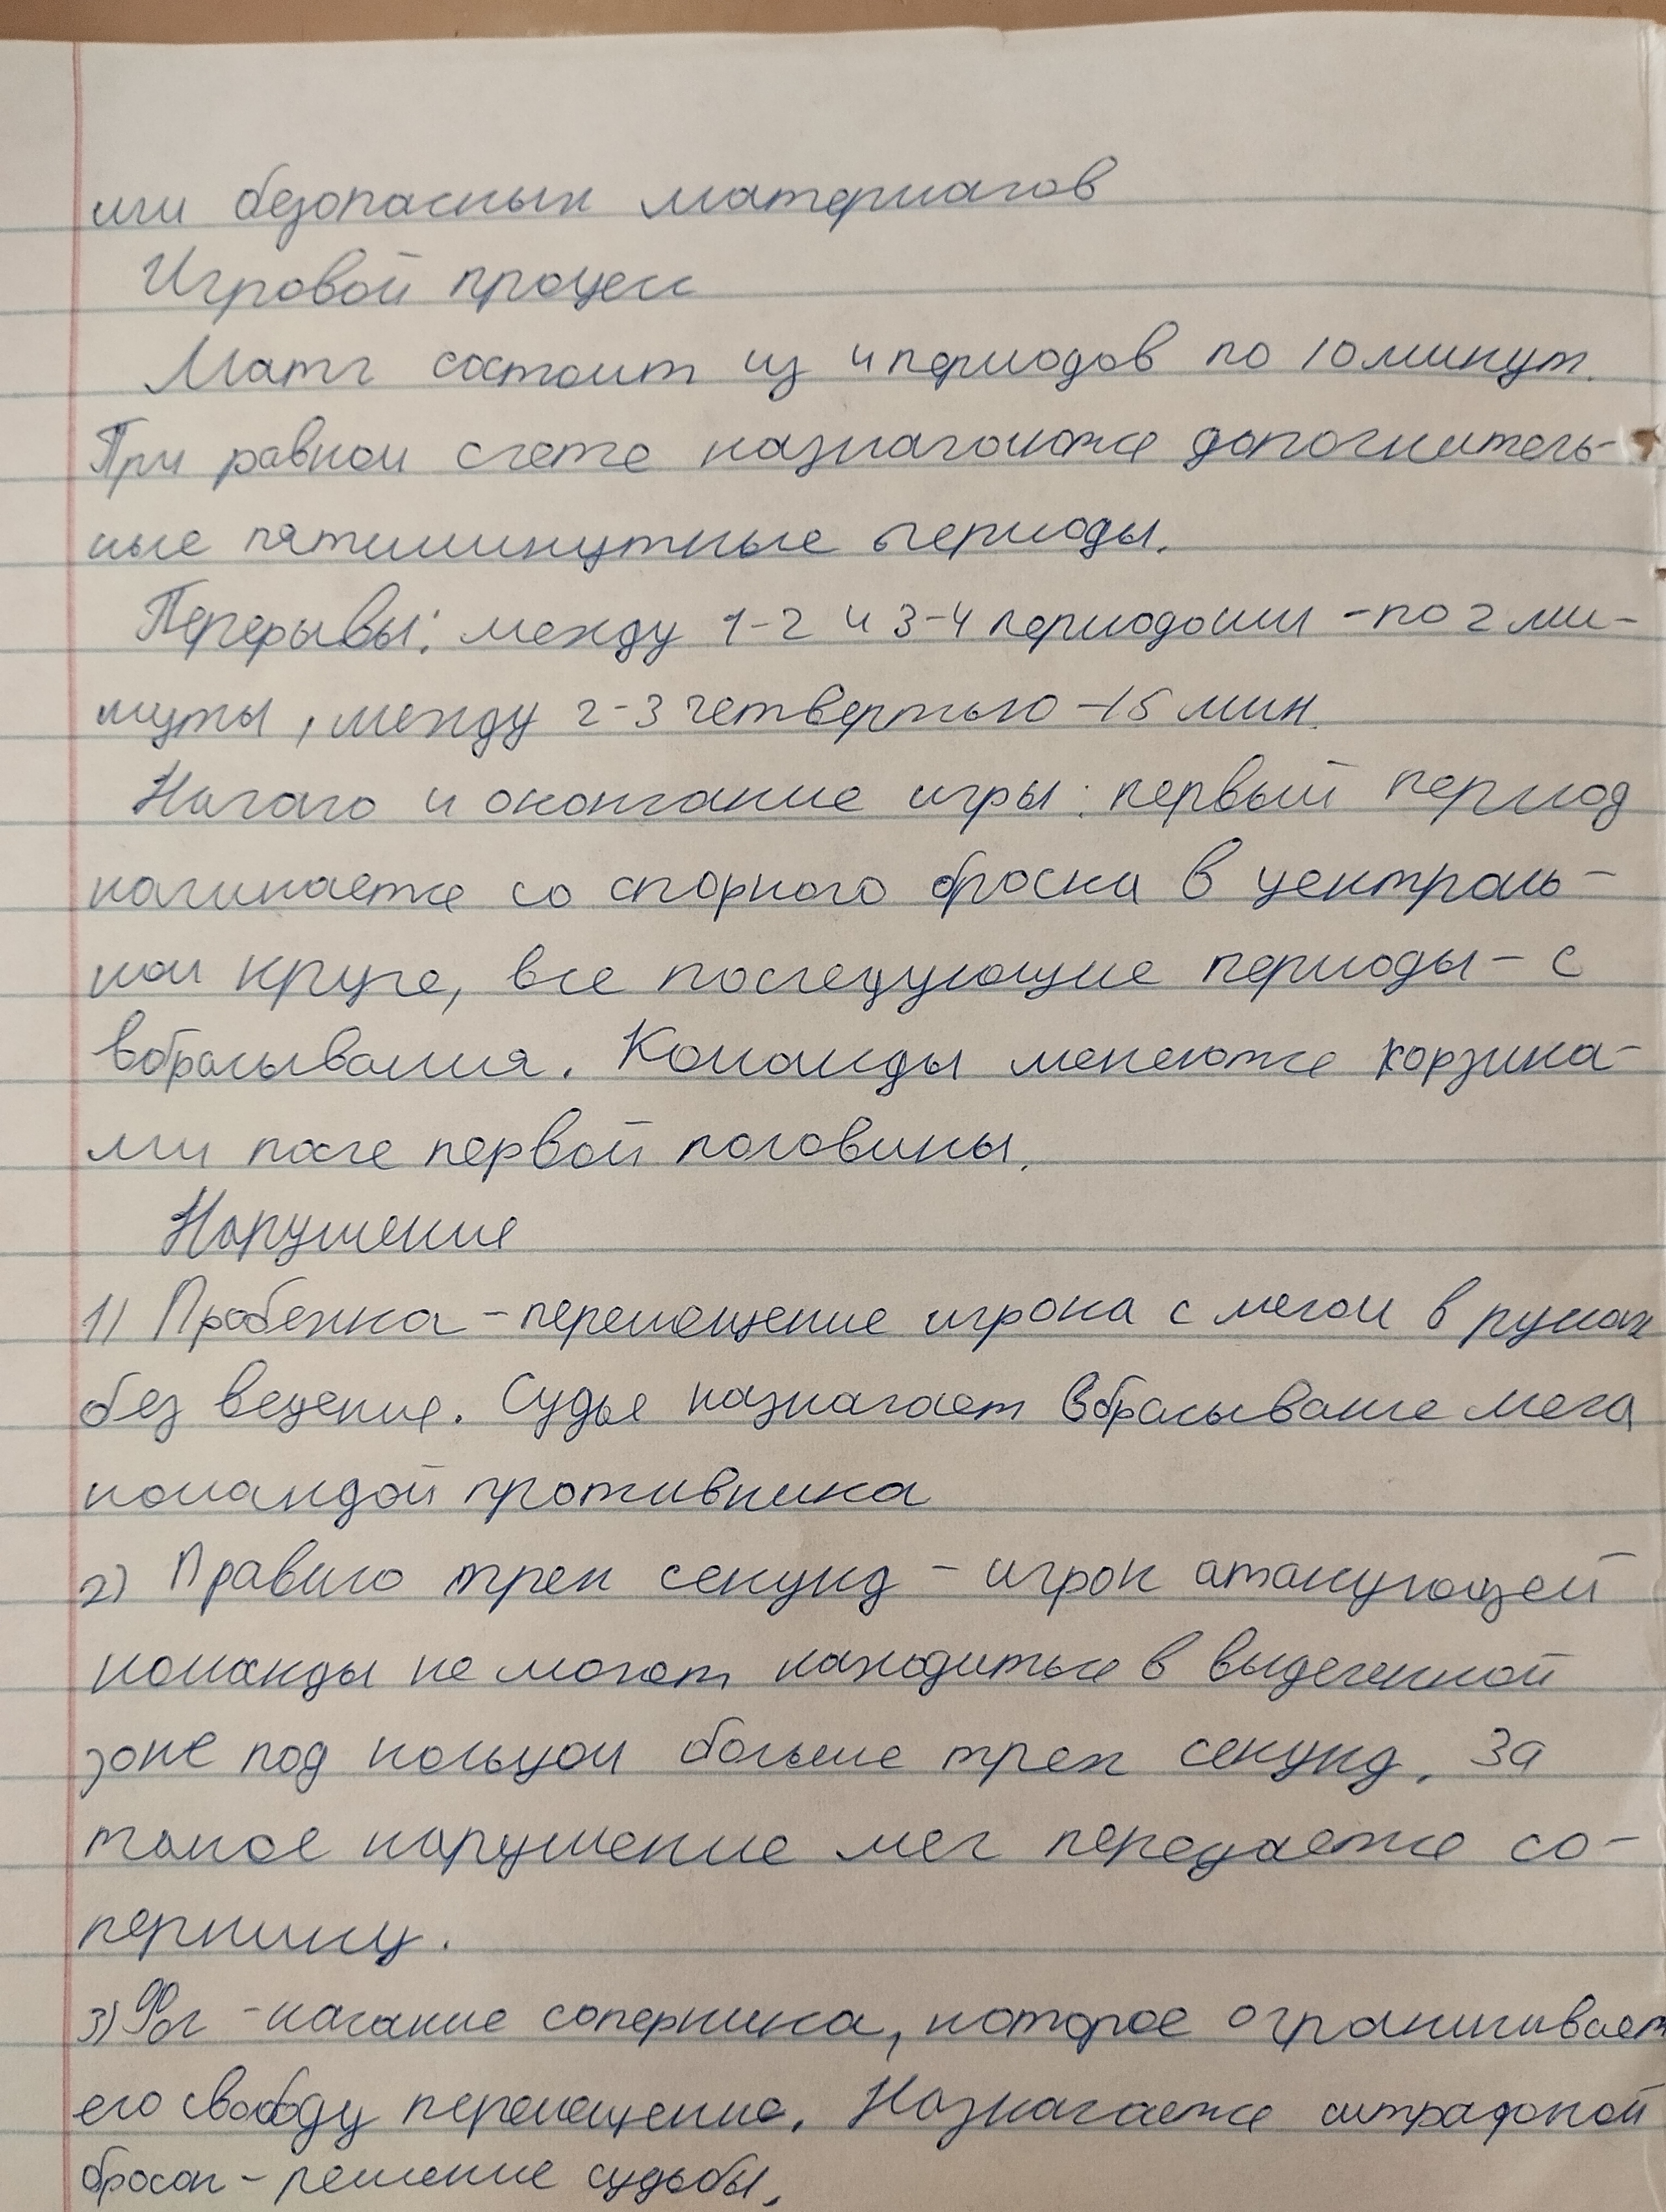 или безопасных материалов
Игровой процесс
Матч состоит из 4 периодов по 10 минут.
При равном счете назначаются дополнитель-
ные пятиминутные периоды.
Перерывы: между 1-2 и 3-4 периодами - по 2 ми-
нуты, между 2-3 четвертью - 15 мин.
Начало и окончание игры: первый период
начинается со спорного броска в централь-
ном круге, все последующие периоды - с
вбрасывания. Команды меняются корзина-
ми после первой половины.
Нарушение
1) Пробежка - перемещение игрока с мячом в руках
без ведение. Судья назначает вбрасывание мяча
командой противника
2) Правило трех секунд - игрок атакующей
команды не может находиться в выделенной
зоне под кольцом больше трех секунд. За
такое нарушение мяч передается со-
пернику.
3) Фол - касание соперника, которое ограничивает
его свободу перемещение. Назначается штрафоной
бросок - решение судьбы.